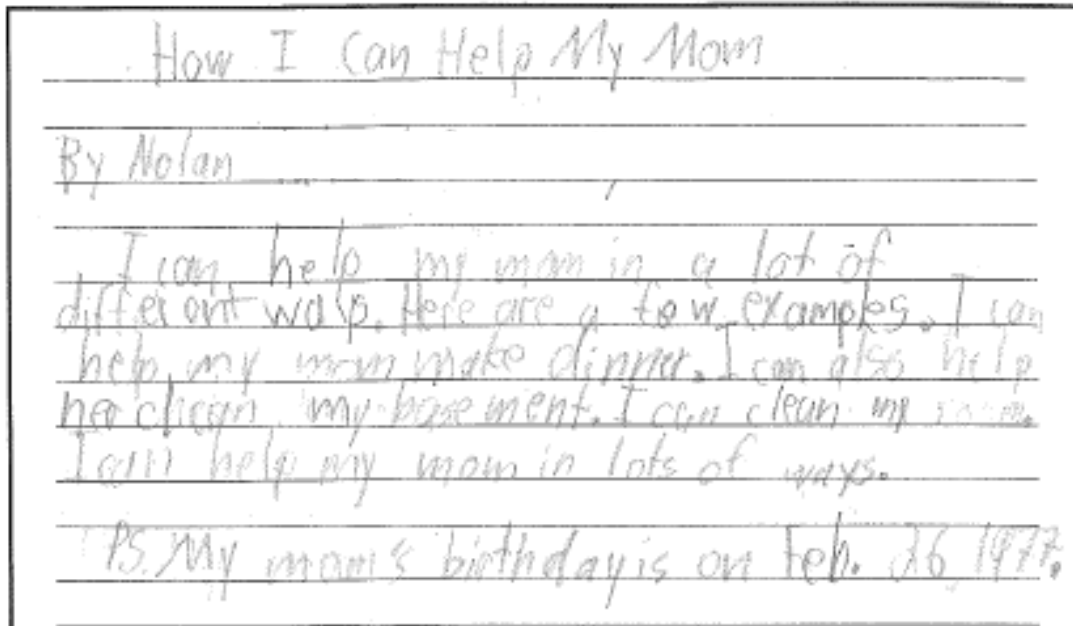 How I Can Help My Mom
By Nolan
I can help my mom in a lot of
different ways. Here are a few examples. I can
help my mom make dinner. I can also help
her clean my basement. I can clean my room.
I can help my mom in lots of ways.
PS. My mom's birthday is on Feb. 26 1977.